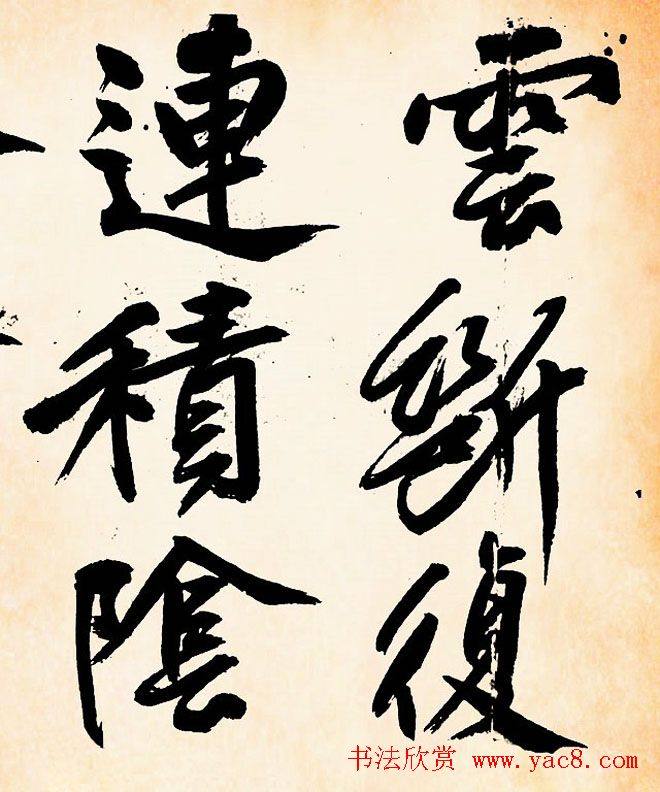 雲斷復
連積陰
书法欣赏 www.yac8.com